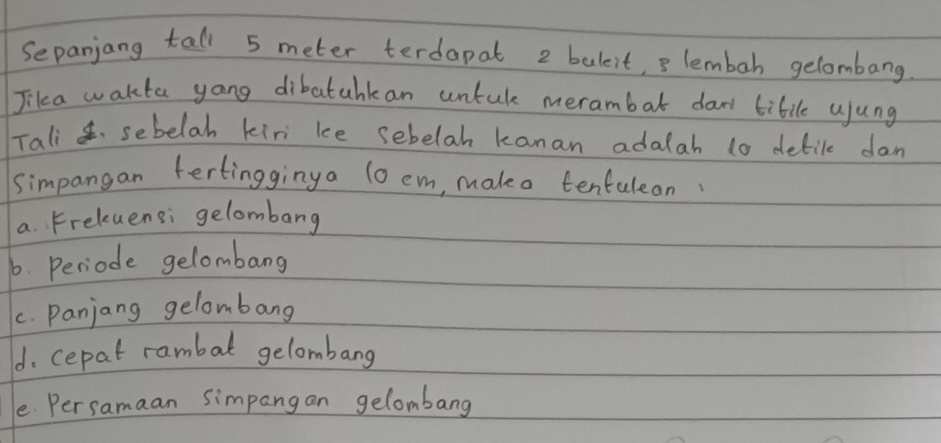 Sepanjang tali 5 meter terdapat 2 bukit, 3 lembah gelombang.
Jika waktu yang dibutuhkan untuk merambat dari titik ujung
Tali sebelah kiri ke sebelah kanan adalah 10 detik dan
Simpangan tertingginya 10 cm, maka tentukan :
a. Frekuensi gelombang
b. Periode gelombang
c. Panjang gelombang
d. Cepat rambat gelombang
e. Persamaan simpangan gelombang